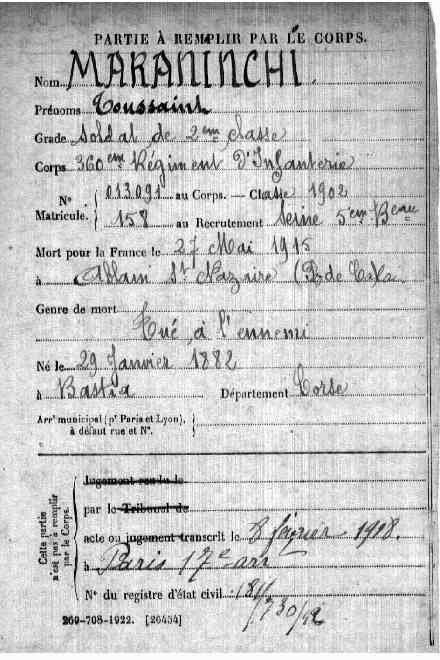 PARTIE À REMPLIR PAR LE CORPS.
Nom MARANINCHI.
Prénoms Toussaint
Grade Soldat de 2eme classe
Corps 360eme Régiment d'Infanterie
N° Matricule. { 013091 au Corps. — Classe 1902
158 au Recrutement Seine 5eme Beau
Mort pour la France le 27 Mai 1915
à Ablain St Nazaire (P. de Calais
Genre de mort
Tué à l'ennemi
Né le 29 Janvier 1882
à Bastia Département Corse
Arrt municipal (pr Paris et Lyon),
à défaut rue et N°.
Cette partie n'est pas à remplir par le Corps.
Jugement rendu le
par le Tribunal de
acte ou jugement transcrit le 8 février 1918.
à Paris 17e arr
N° du registre d'état civil
269-708-1922. [26434]